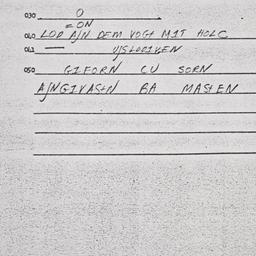 030 O
= ON
040 LOD AJN DEM VOGT MIT HOLC
041 — VJSLODIVEN
050 GIFORN CU SORN
AJNGIVASHN BA MASTEN